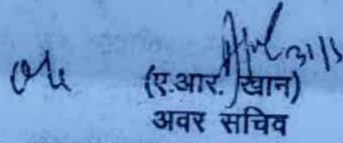 (ए.आर. खान)
अवर सचिव